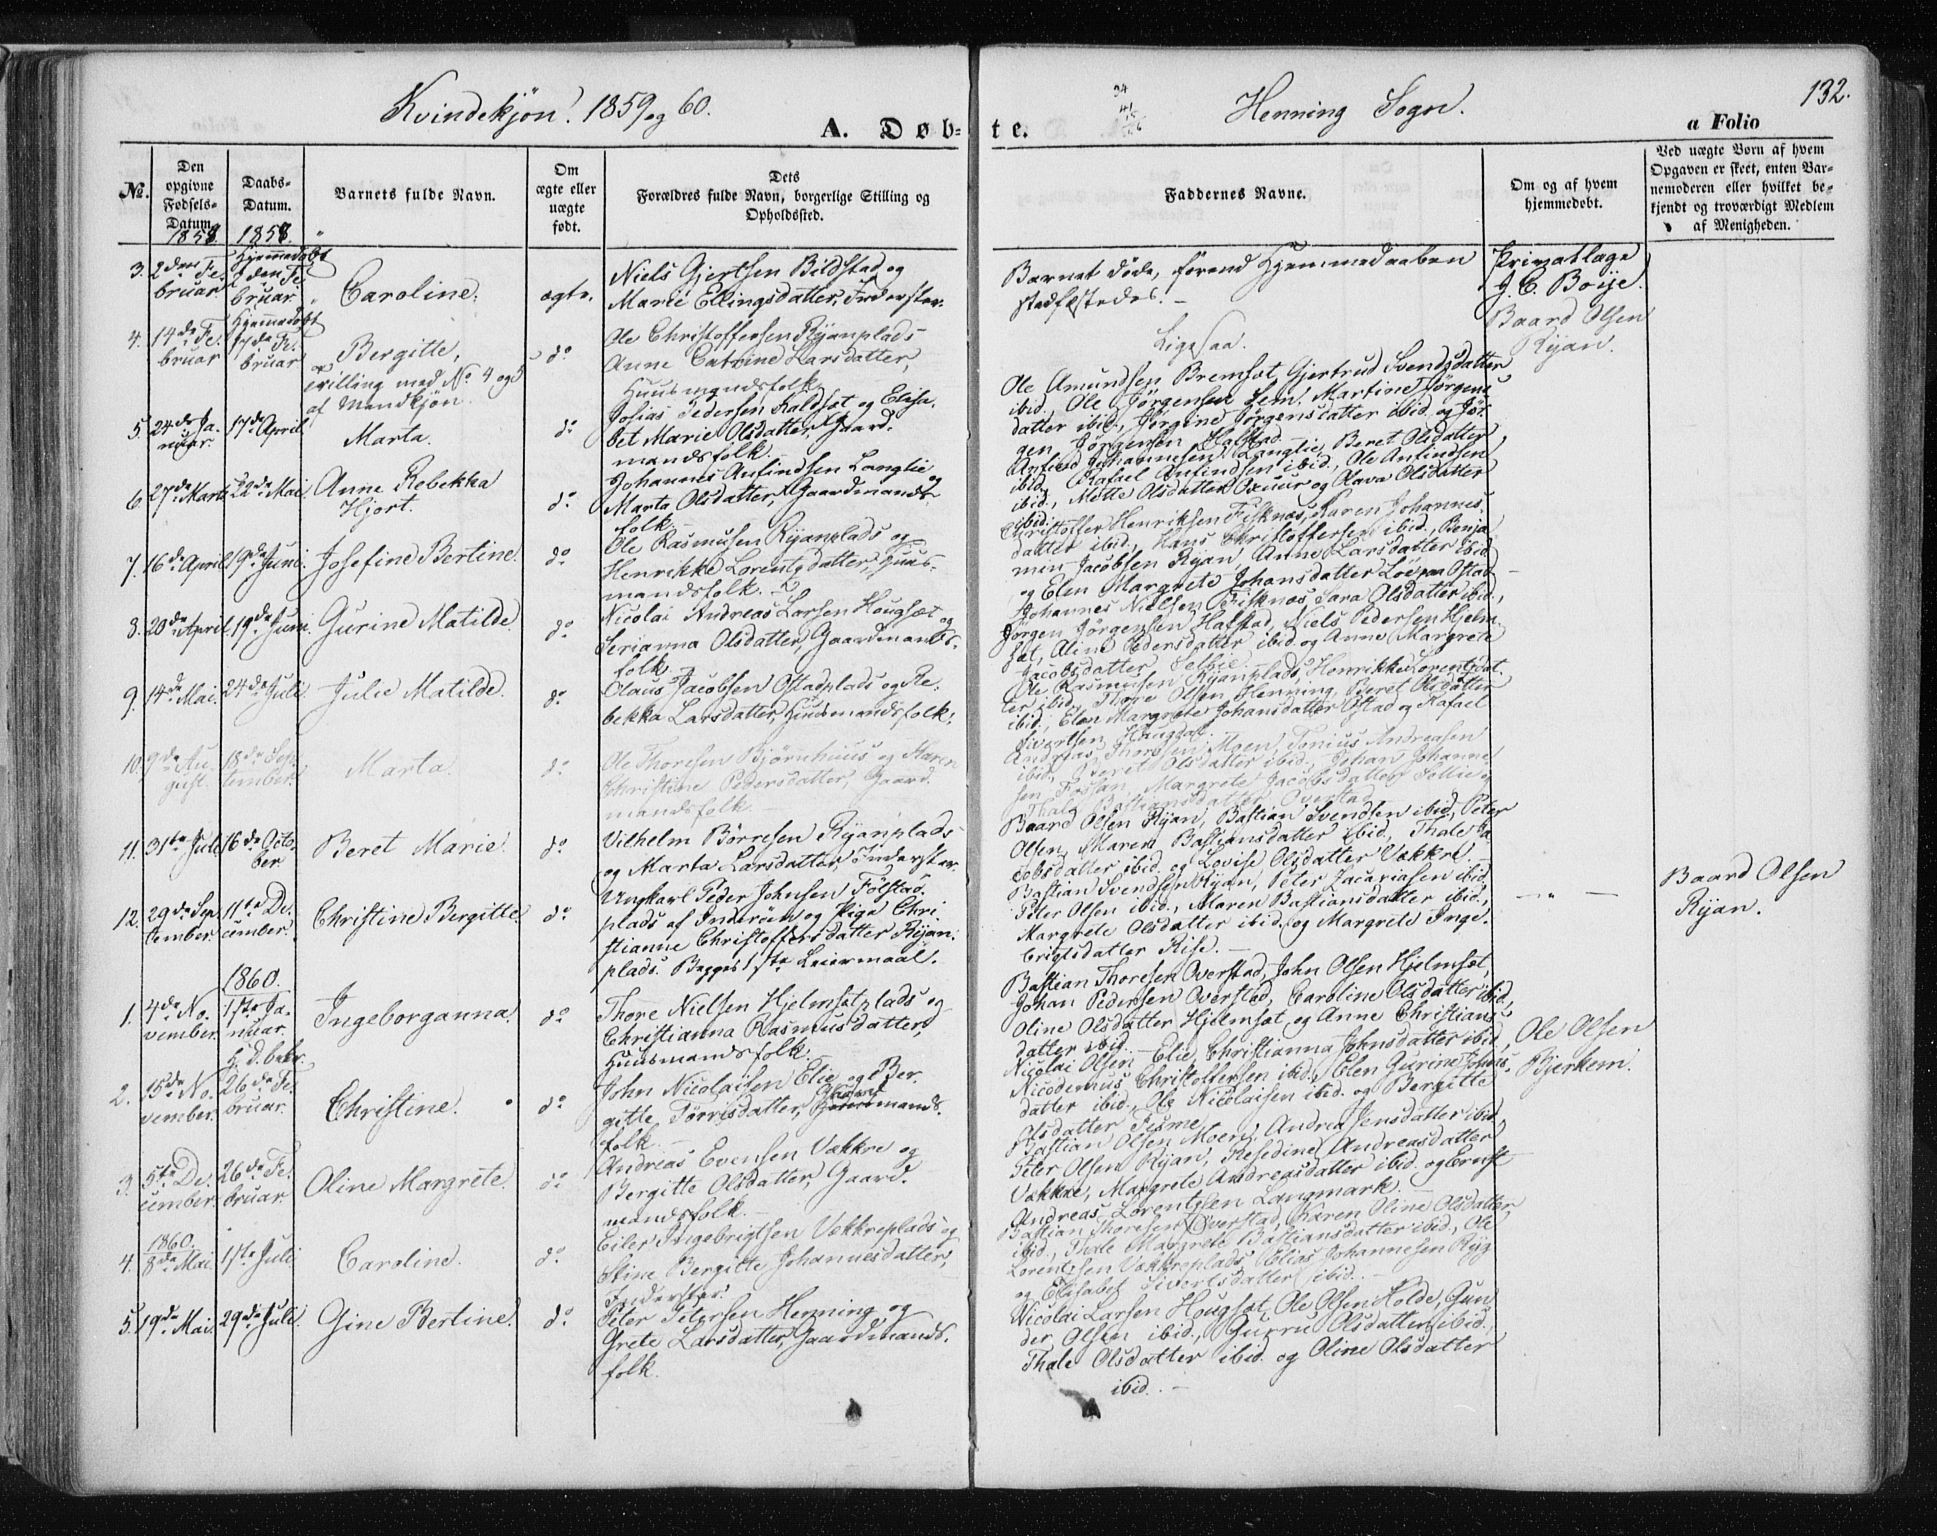 Kvindekjön. 1859 og 60.
A. Døb-
te.
Henning Sogn.
132.
a Folio
No.
Den opgivne Fødsels-Datum.
Daabs-Datum.
Barnets fulde Navn.
Om ægte eller uægte født.
Dets Forældres fulde Navn, borgerlige Stilling og Opholdssted.
Faddernes Navne.
Om og af hvem hjemmedøbt.
Ved uægte Børn af hvem
Opgaven er skeet, enten Bar-
nemoderen eller hvilket be-
kjendt og troværdigt Medlem
af Menigheden.
3. 2den Februar
Hjemmedøbt 2den Februar
Caroline.
ægte.
Niels Gjertsen Bildstad og
Marie Ellingsdatter, Inderster.
Barnet døde, førend Hjemmedaaben
stadfæstedes. -
Privatlæge
J. C. Boije.
4. 14de Februar
Hjemmedøbt 17de Februar
Bergitte,
trilling med No 4 og 5
af Mandkjön.
do
Ole Christoffersen Ryanplads
Anne Catrine Larsdatter,
Huusmandsfolk.
Ligesaa.
Baard Olsen
Ryan.
5. 24de Januar.
17de April
Marta.
do
Josias Pedersen Kaldsæt og Elisa-
bet Marie Olsdatter, Gaard-
mandsfolk.
Ole Amundsen Bremsæt Gjertrud Svendsdatter
ibid., Ole Jörgensen Lem, Martine Jörgens-
datter ibid., Jörgine Jörgensdatter ibid. og Jör-
gen Jörgensen Halstad.
6. 27de Marts
22de Mai
Anne Rebekka
Hjort.
do
Johannes Anfindsen Langlie og
Marta Olsdatter, Gaardmands-
folk.
Anfind Johannesen Langlie, Beret Olsdatter
ibid., Rafael Anfindsen ibid., Ole Anfindsen
ibid., Mette Olsdatter Oxuur og Olava Olsdatter
ibid.
7. 16de April
19de Juni.
Josefine Bertine.
do
Ole Rasmusen Ryanplads og
Henrikke Lorentsdatter, Huus-
mandsfolk.
Christoffer Henriksen Fisknæs, Karen Johannes-
datter ibid., Hans Christoffersen ibid., Benja-
min Jacobsen Ryan, Anne Larsdatter ibid.
og Elen Margrete Johansdatter Löe paa Ostad
8. 20de April
19de Juni.
Gurine Matilde.
do
Nicolai Andreas Larsen Hougsæt og
Serianna Olsdatter, Gaardmands-
folk.
Johannes Nielsen Fisknæs, Sara Olsdatter ibid.,
Jörgen Jörgensen Halstad, Niels Pedersen Hjelm-
sæt, Aline Pedersdatter ibid. og Anne Margrete
Jacobsdatter Selbie.
9. 14de Mai.
24de Juli
Julie Matilde.
do
Olaus Jacobsen Ostadplads og Re-
bekka Larsdatter, Huusmandsfolk.
Ole Rasmusen Ryanplads, Henrikke Lorentsdat-
ter ibid., Thore Olsen Henning, Beret Olsdatter
ibid., Elen Margrete Johansdatter Ostad og Rafael
Sivertsen Hougsæt.
10. 9de August.
18de September.
Marta.
do
Ole Thoresen Björnhuus og Karen
Christine Pedersdatter, Gaard-
mandsfolk.
Andreas Thoresen Moen, Tonius Andreasen
ibid., Beret Olsdatter ibid., Johan Johanne-
sen Fossan, Margrete Jacobsdatter Sellie og
Thale Bastiansdatter Overstad.
11. 31te Juli
16de October
Beret Marie.
do
Vilhelm Börresen Ryanplads
og Marta Larsdatter, Inderster.
Baard Olsen Ryan, Bastian Svendsen ibid., Peter
Olsen, Maren Bastiansdatter ibid., Thale Ja-
cobsdatter ibid. og Lovise Olsdatter Vækkre. -
12. 29de September.
11te December.
Christine Bergitte
do
Ungkarl Peder Johnsen Fölstad-
plads af Inderöen og Pige Chri-
stianne Christoffersdatter Ryan-
plads. Begges 1ste Leiermaal.
Bastian Svendsen Ryan, Peter Zacariasen ibid.
Peter Olsen ibid., Maren Bastiansdatter ibid.,
Margrete Olsdatter ibid. og Margrete Inge-
brigtsdatter Rise. -
- " -
Baard Olsen
Ryan.
1860.
1. 4de November.
1ste Januar.
Ingeborganna.
do
Thore Nielsen Hjelmsætplads og
Christianna Rasmusdatter,
Huusmandsfolk.
Bastian Thoresen Overstad, John Olsen Hjelmsæt,
Johan Pedersen Overstad, Caroline Olsdatter ibid.,
Oline Olsdatter Hjelmsæt og Anne Christians-
datter ibid. -
2. 15de November.
26de Februar.
Christine.
do
John Nicolaisen Elie og Ber-
gitte Torrisdatter, Gaardmands-
folk. -
Nicolai Olsen Elie, Christianna Johnsdatter ibid.,
Nicodemus Christoffersen ibid., Elen Gurine Johns-
datter ibid., Ole Nicolaisen ibid. og Bergitte
Olsdatter Tisme.
Ole Olsen
Bjerkem.
3. 5te December.
26de Februar.
Oline Margrete.
do
Andreas Evensen Vækkre og
Bergitte Olsdatter, Gaard-
mandsfolk. -
Bastian Olsen Moen, Andrea Jensdatter ibid.,
Peter Olsen Ryan, Resedine Andreasdatter
Vækkre, Margrete Andreasdatter ibid. og Ernst
Andreas Lorentsen Langmark. -
4. 1860. 8de Mai
1ste Juli
Caroline.
do
Eiler Ingebrigtsen Vækkreplads og
Stine Bergitte Johannesdatter,
Inderster.
Bastian Thoresen Overstad, Karen Oline Olsdatter
ibid., Thale Margrete Bastiansdatter ibid., Ole
Lorentsen Vækkreplads, Elias Johannesen Ryg
og Elisabet Sivertsdatter ibid. -
5. 19de Mai
29de Juli.
Gine Bertine.
do
Peter Petersen Henning og
Grete Larsdatter, Gaardmands-
folk.
Nicolai Larsen Hougsæt, Ole Olsen Holde, Gun-
der Olsen ibid., Gurru Olsdatter ibid.,
Thale Olsdatter ibid. og Oline Olsdatter
ibid. -